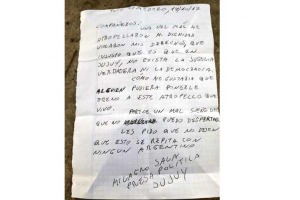 COMPAÑEROS: UNA VEZ MAS, ME
ATROPELLARON MI DIGNIDAD
VIOLARON MIS DERECHOS, QUE
QUE ES QUE EN
JUJUY, NO EXISTA LA JUSTICIA
VERDADERA NI LA DEMOCRACIA.
COMO ME GUSTARIA QUE
ALGUIEN PUDIERA PONERLE
FRENO A ESTE ATROPELLO QUE
VIVO.
PARECE UN MAL SUEÑO DEL
QUE NO PUEDO DESPERTAR
LES PIDO QUE NO DEJEN
QUE ESTO SE REPITA CON
NINGUN ARGENTINO
MILAGRO SALA
PRESA POLITICA
JUJUY